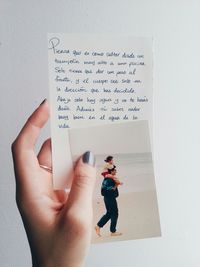 Piensa que es como saltar desde un
trampolín muy alto a una piscina.
Solo tienes que dar un paso al
frente, y el cuerpo cae solo en
la dirección que has decidido.
Abajo solo hay agua y no te harás
daño. Además tú sabes nadar
muy bien en el agua de la
vida.